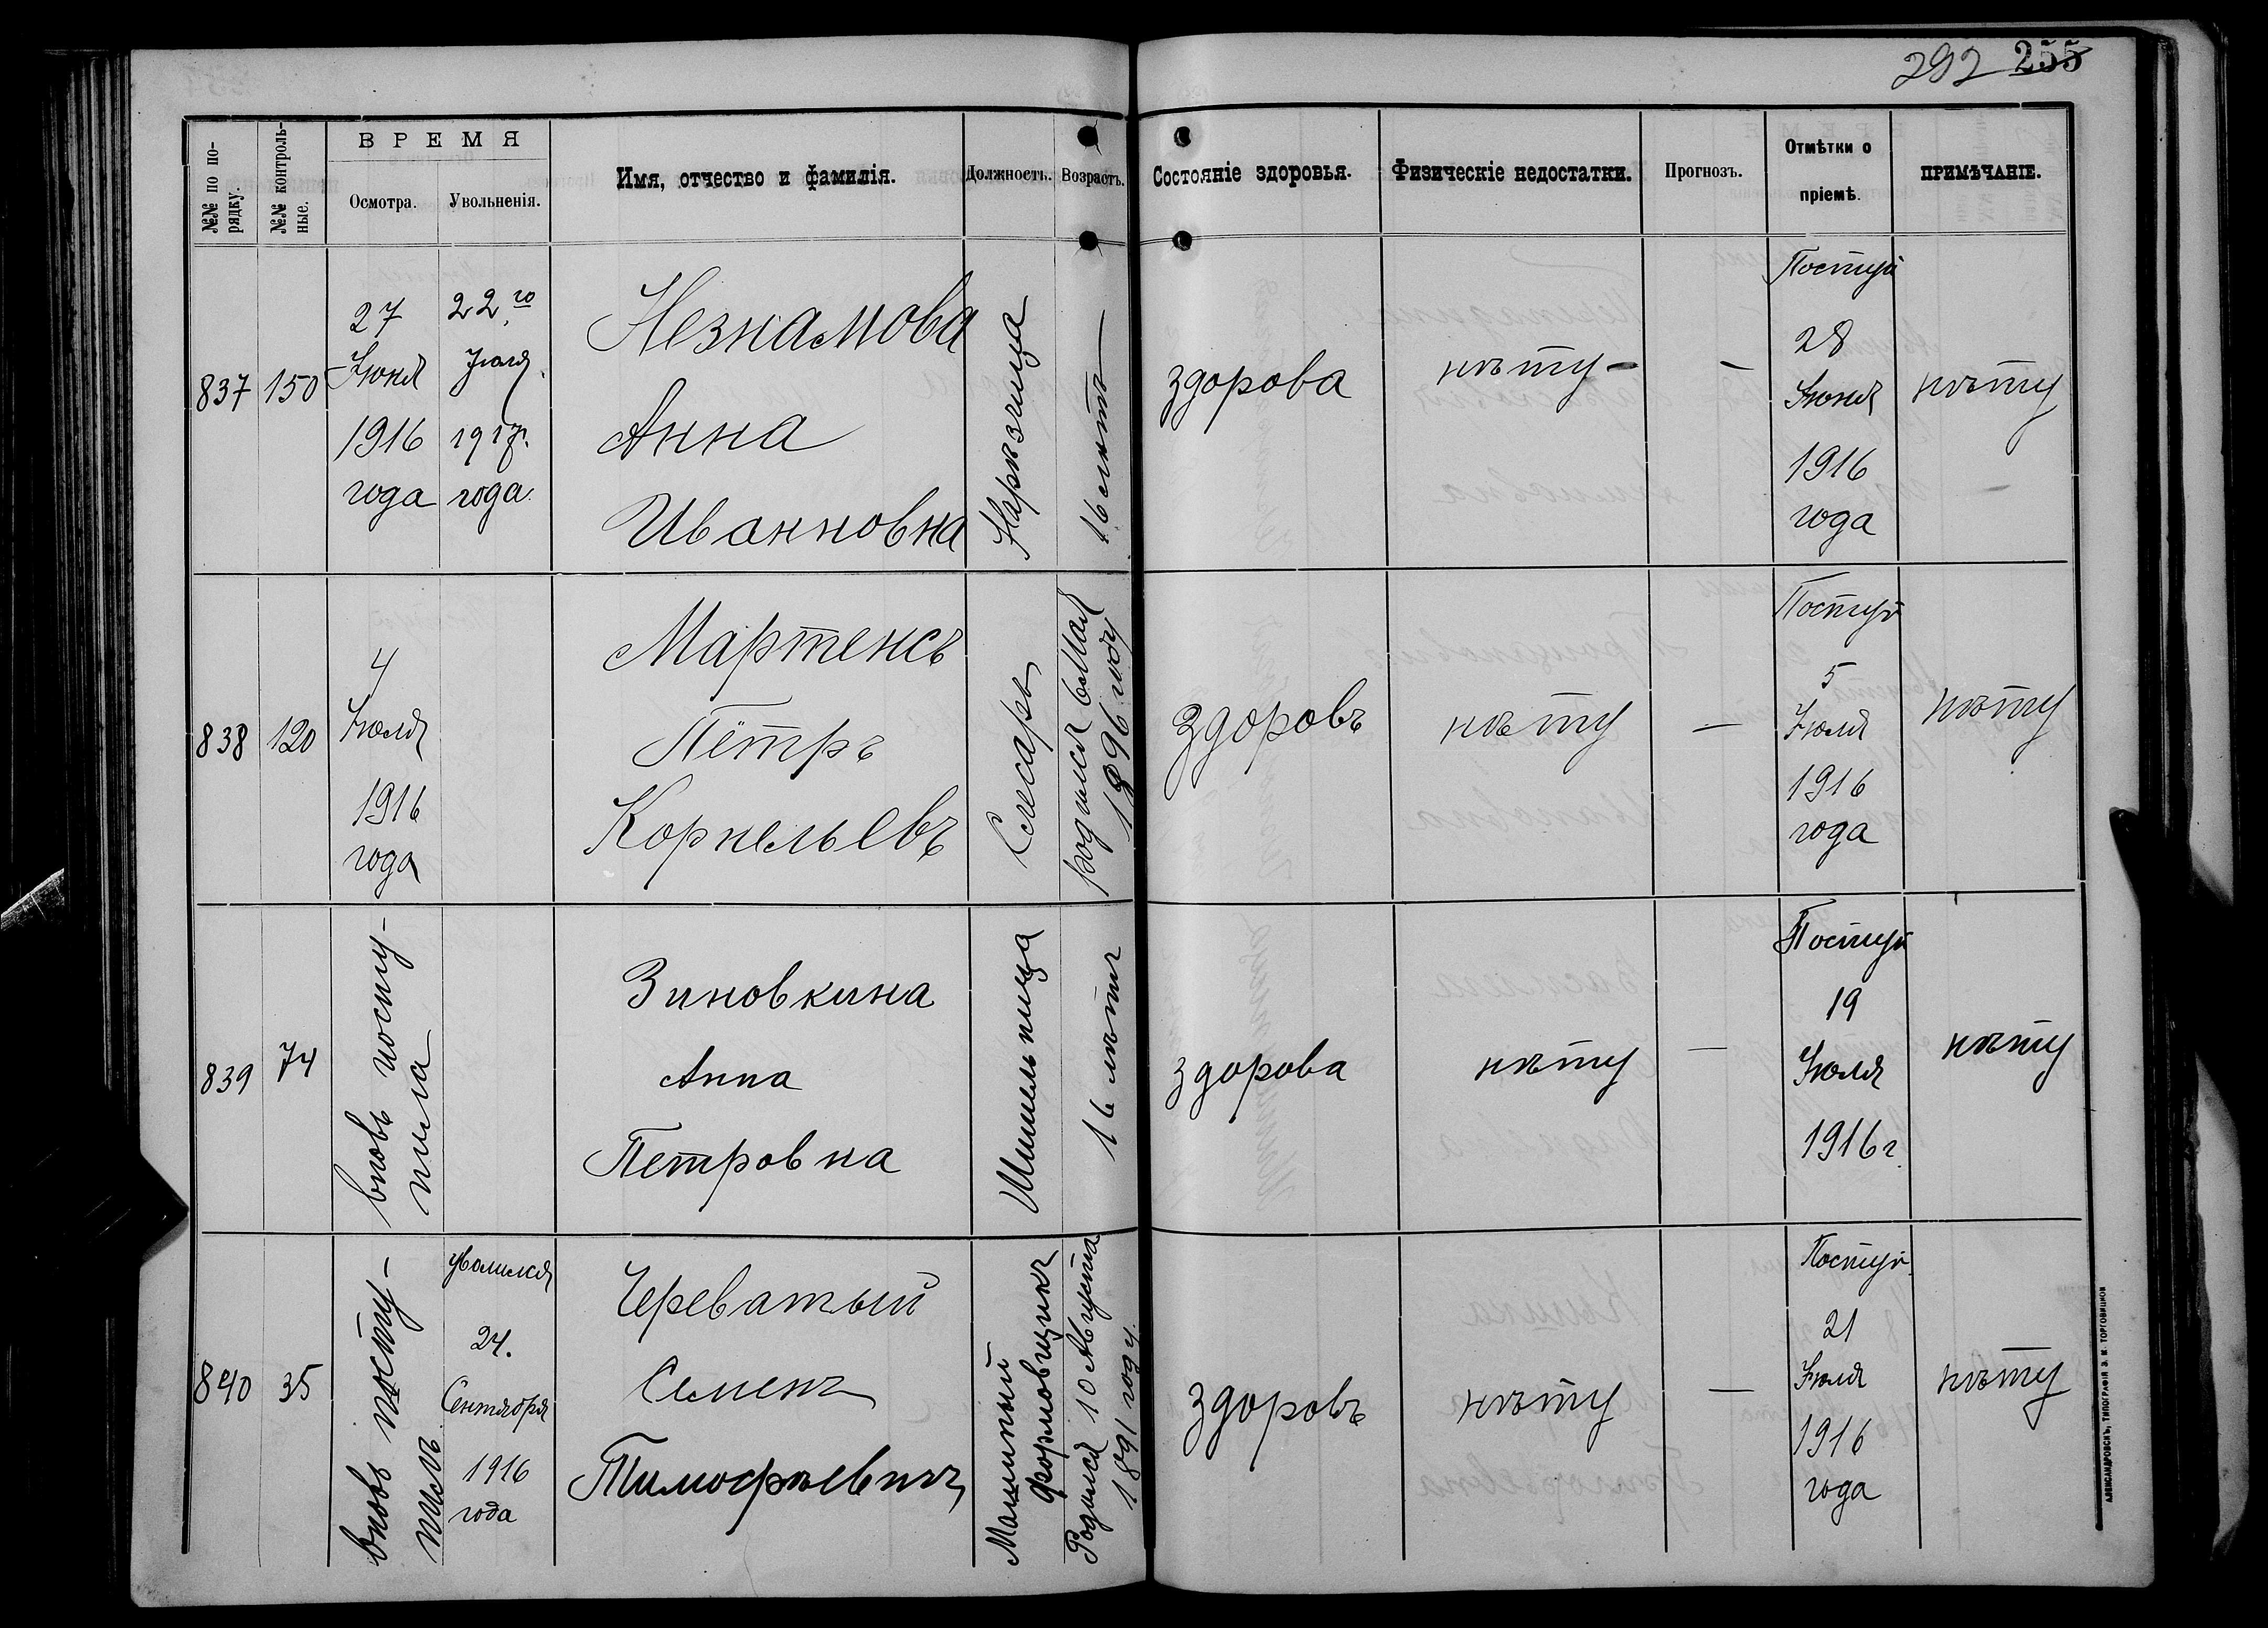 292 255
№№ по по-
рядку.
№№ контроль-
ные.
ВРЕМЯ
Осмотра.
Увольненія.
Имя, отчество и фамилія.
Должность.
Возрастъ.
Состояніе здоровья.
Физическіе недостатки.
Прогнозъ.
Отмѣтки о
пріемѣ.
ПРИМѢЧАНІЕ.
837
150
27
Июня
1916
года
22го
Июля
1917г.
года
Незнамова
Анна
Иванновна
16 лѣтъ
здорова
нѣту -
-
Поступ
28
Июня
1916
года
нѣту
838
120
4
Июля
1916
года
Мартенсъ
Пётръ
Корнельевъ
Слесарь
родился 6 Мая
1896 году
Здоровъ
нѣту
-
Поступ
5
Июля
1916
года
нѣту
839
74
вновь посту-
пила
Зиновкина
Анна
Петровна
Шишельница
16 лѣтъ
здорова
нѣту
-
Поступ
19
Июля
1916 г.
нѣту
840
35
вновь посту-
пилъ
уволился
24.
Сентября
1916
года
Череватый
Семенъ
Тимофѣевичъ
Машинный
формовщикъ
Родился 10 Августа
1891 году.
здоровъ
нѣту
-
Поступ.
21
Июля
1916
года
нѣту
АЛЕКСАНДРОВСКЪ, ТИПОГРАФІЯ Э. И. ТОРГОВИЦКОВ